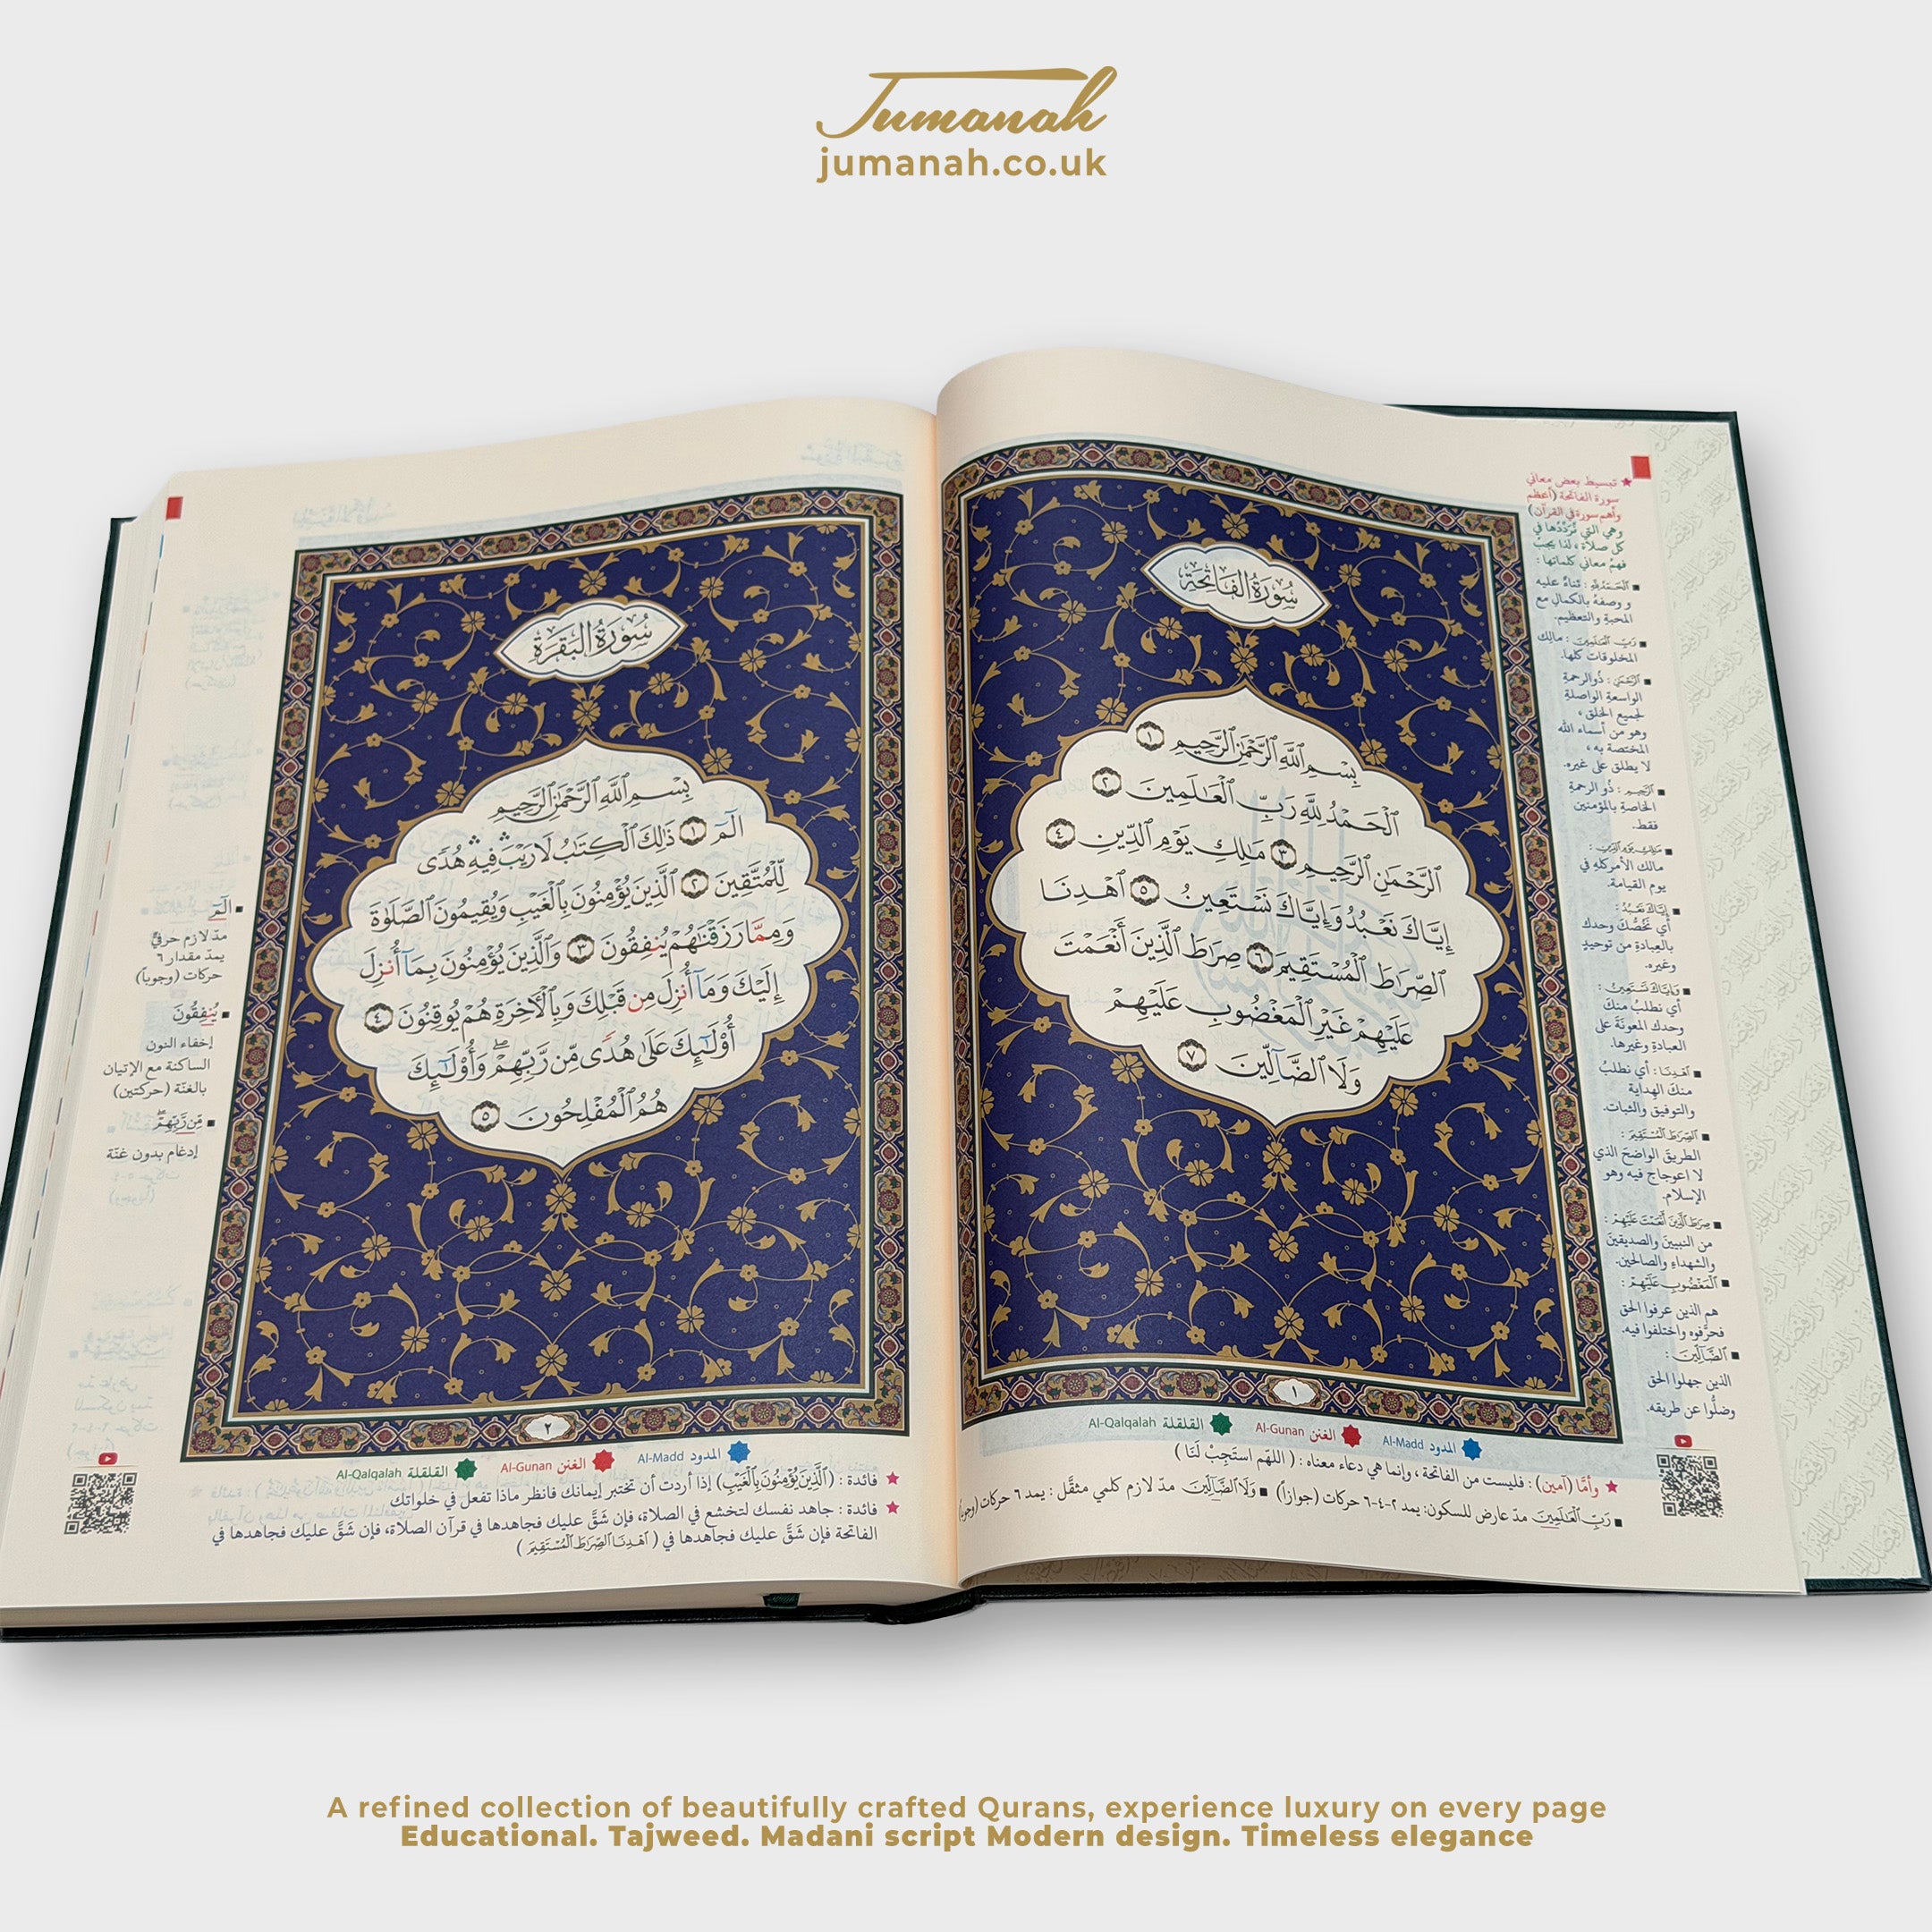 Jumanah
jumanah.co.uk
سُورَةُ الفَاتِحَةِ
بِسْمِ ٱللَّهِ ٱلرَّحْمَٰنِ ٱلرَّحِيمِ ١
ٱلْحَمْدُ لِلَّهِ رَبِّ ٱلْعَٰلَمِينَ ٢
ٱلرَّحْمَٰنِ ٱلرَّحِيمِ ٣ مَٰلِكِ يَوْمِ ٱلدِّينِ ٤
إِيَّاكَ نَعْبُدُ وَإِيَّاكَ نَسْتَعِينُ ٥ ٱهْدِنَا
ٱلصِّرَٰطَ ٱلْمُسْتَقِيمَ ٦ صِرَٰطَ ٱلَّذِينَ أَنْعَمْتَ
عَلَيْهِمْ غَيْرِ ٱلْمَغْضُوبِ عَلَيْهِمْ
وَلَا ٱلضَّآلِّينَ ٧
١
★ تبسيط بعض معاني
سورة الفاتحة (أعظم
وأهم سورة في القرآن)
وهي التي تُرَدِّدُها في
كل صلاة ، لذا يجبُ
فهمُ معاني كلماتها :
■ ٱلْحَمْدُ لِلَّهِ : ثناءٌ عليه
و وصفهُ بالكمالِ مع
المحبةِ والتعظيم.
■ رَبِّ ٱلْعَٰلَمِينَ : مالِك
المخلوقات كلها.
■ ٱلرَّحْمَٰنِ : ذُو الرحمةِ
الواسعةِ الواصلةِ
لجميع الخلق ،
وهو من أسماء الله
المختصة به ،
لا يطلق على غيره.
■ ٱلرَّحِيمِ : ذُو الرحمةِ
الخاصةِ بالمؤمنين
فقط.
■ مَٰلِكِ يَوْمِ ٱلدِّينِ :
مالك الأمر كلهِ في
يوم القيامة.
■ إِيَّاكَ نَعْبُدُ :
أي نَخُصُّكَ وحدك
بالعبادةِ من توحيدٍ
وغيره.
■ وَإِيَّاكَ نَسْتَعِينُ :
أي نطلبُ منكَ
وحدك المعونَةَ على
العبادةِ وغيرها.
■ ٱهْدِنَا : أي نطلبُ
منكَ الهداية
والتوفيق والثبات.
■ ٱلصِّرَٰطَ ٱلْمُسْتَقِيمَ :
الطريقَ الواضحَ الذي
لا اعوجاج فيه وهو
الإسلام.
■ صِرَٰطَ ٱلَّذِينَ أَنْعَمْتَ عَلَيْهِمْ :
من النبيينَ والصديقينَ
والشهداءِ والصالحين.
■ ٱلْمَغْضُوبِ عَلَيْهِمْ :
هم الذين عرفوا الحق
فحرَّفوه واختلفوا فيه.
■ ٱلضَّآلِّينَ :
الذين جهلوا الحق
وضلُّوا عن طريقه.
المدود Al-Madd الغنن Al-Gunan القلقلة Al-Qalqalah
★ وأمَّا (آمين) : فليست من الفاتحة ، وإنما هي دعاء معناه : ( اللهم استَجِبْ لَنَا )
■ رَبِّ ٱلْعَٰلَمِينَ مدّ عارض للسكون: يمد ٢-٤-٦ حركات (جوازاً) ■ وَلَا ٱلضَّآلِّينَ مدّ لازم كلمي مثقَّل : يمد ٦ حركات (وجوباً)
سُورَةُ البَقَرَةِ
بِسْمِ ٱللَّهِ ٱلرَّحْمَٰنِ ٱلرَّحِيمِ
الٓمٓ ١ ذَٰلِكَ ٱلْكِتَٰبُ لَا رَيْبَ ۛ فِيهِ ۛ هُدًى
لِّلْمُتَّقِينَ ٢ ٱلَّذِينَ يُؤْمِنُونَ بِٱلْغَيْبِ وَيُقِيمُونَ ٱلصَّلَوٰةَ
وَمِمَّا رَزَقْنَٰهُمْ يُنفِقُونَ ٣ وَٱلَّذِينَ يُؤْمِنُونَ بِمَآ أُنزِلَ
إِلَيْكَ وَمَآ أُنزِلَ مِن قَبْلِكَ وَبِٱلْءَاخِرَةِ هُمْ يُوقِنُونَ ٤
أُو۟لَٰٓئِكَ عَلَىٰ هُدًى مِّن رَّبِّهِمْ ۖ وَأُو۟لَٰٓئِكَ
هُمُ ٱلْمُفْلِحُونَ ٥
٢
■ الٓمٓ
مدّ لازم حرفيّ
يمدّ مقدار ٦
حركات (وجوباً)
■ يُنفِقُونَ
إخفاء النون
الساكنة مع الإتيان
بالغنّة (حركتين)
■ مِّن رَّبِّهِمْ ۖ
إدغام بدون غنّة
المدود Al-Madd الغنن Al-Gunan القلقلة Al-Qalqalah
★ فائدة : (ٱلَّذِينَ يُؤْمِنُونَ بِٱلْغَيْبِ) إذا أردت أن تختبر إيمانك فانظر ماذا تفعل في خلواتك
★ فائدة : جاهد نفسك لتخشع في الصلاة، فإن شَقَّ عليك فجاهدها في قرآن الصلاة، فإن شَقَّ عليك فجاهدها في
الفاتحة فإن شَقَّ عليك فجاهدها في ( ٱهْدِنَا ٱلصِّرَٰطَ ٱلْمُسْتَقِيمَ )
A refined collection of beautifully crafted Qurans, experience luxury on every page
Educational. Tajweed. Madani script Modern design. Timeless elegance